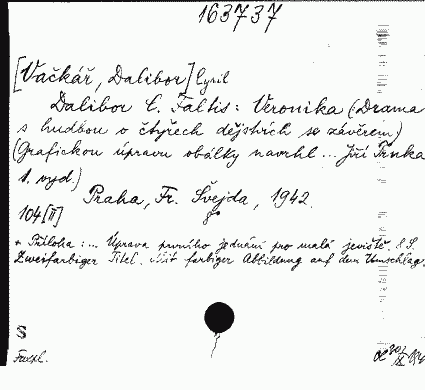 163737
[Vačkář, Dalibor] Cyril
Dalibor C. Faltis: Veronika (Drama
s hudbou o čtyřech dějstvích se závěrem)
(Grafickou úpravu obálky navrhl ... Jiří Trnka
1. vyd.)
Praha, Fr. Švejda, 1942.
104 [II]
+ Příloha: ... Úprava prvního jednání pro malá jeviště. 8 S.
Zweifarbiger Titel. Mit farbiger Abbildung auf dem Umschlag.
S